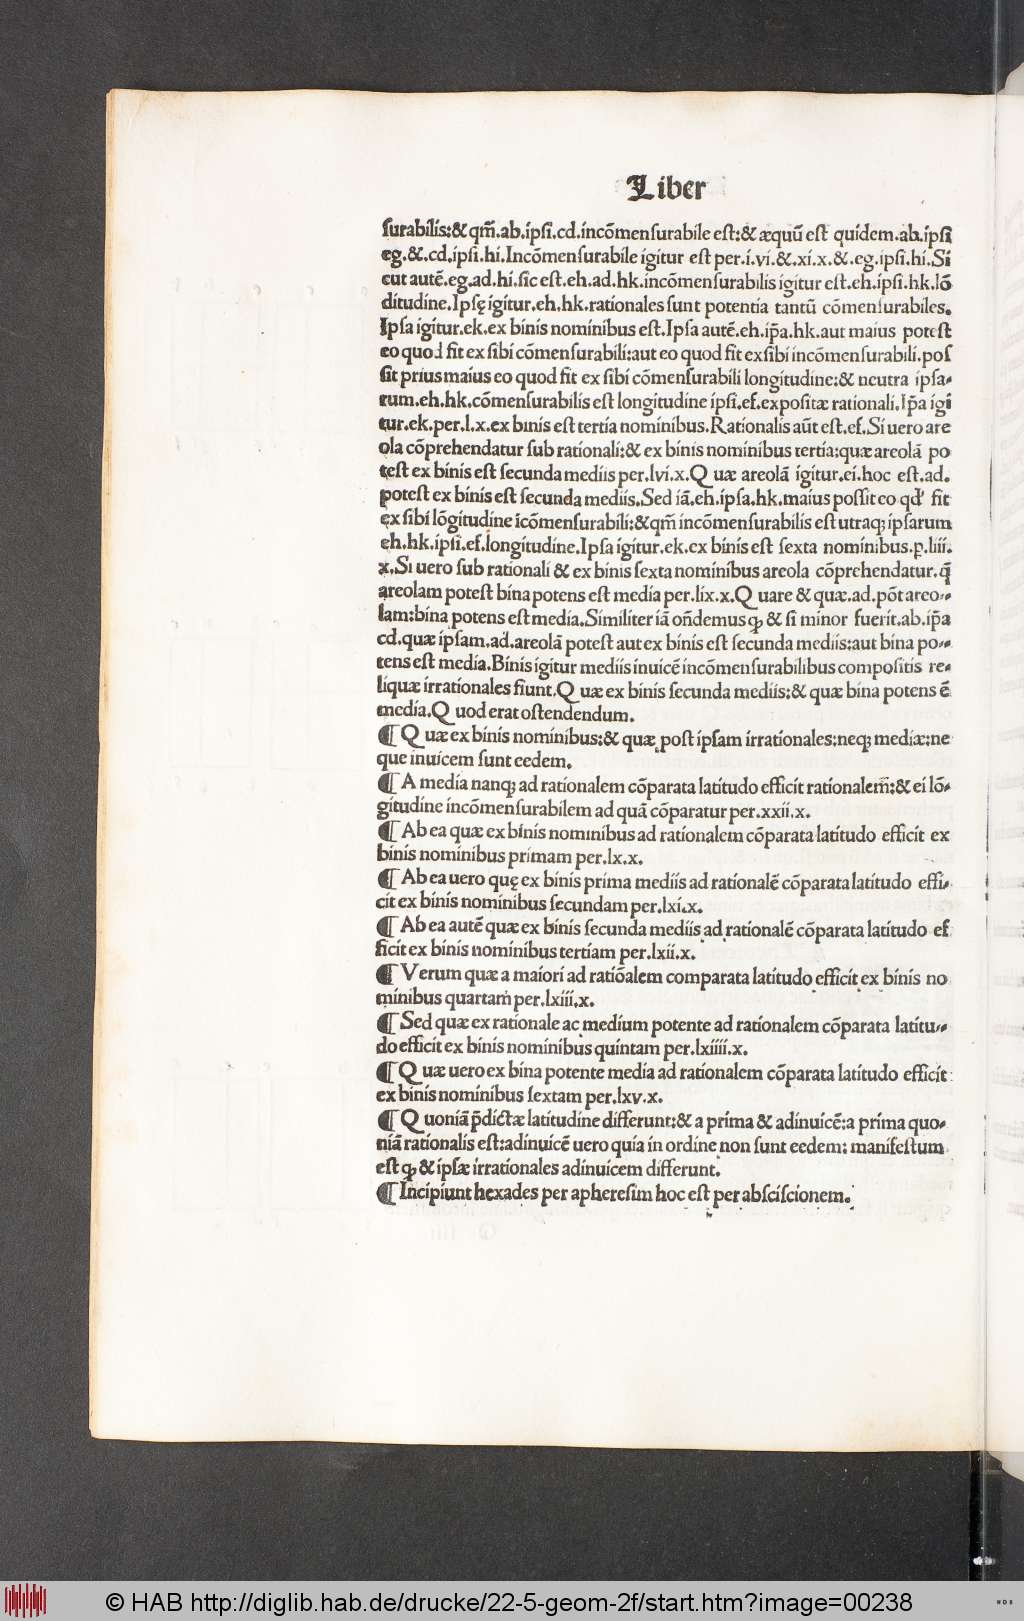 Liber
surabilis:&qm̄.ab.ipsi.cd.incōmensurabile est:& æquū est quidem.ab.ipsi
eg.&.cd.ipsi.hi.Incōmensurabile igitur est per.i.vi.&.xi.x.&.eg.ipsi.hi.Si
cut autē.eg.ad.hi.sic est.eh.ad.hk.incōmensurabilis igitur est.eh.ipsi.hk.lō
ditudine.Ipsę igitur.eh.hk.rationales sunt potentia tantū cōmensurabiles.
Ipsa igitur.ek.ex binis nominibus est.Ipsa autē.eh.ip̄a.hk.aut maius potest
eo quod fit ex sibi cōmensurabili:aut eo quod fit ex sibi incōmensurabili.pos
sit prius maius eo quod fit ex sibi cōmensurabili longitudine:& neutra ipsa-
rum.eh.hk.cōmensurabilis est longitudine ipsi.ef.expositæ rationali.Ip̄a igi
tur.ek.per.l.x.ex binis est tertia nominibus.Rationalis aūt est.ef.Si uero are
ola cōprehendatur sub rationali:& ex binis nominibus tertia:quæ areolā po
test ex binis est secunda mediis per.lvi.x.Quæ areolā igitur.ei.hoc est.ad.
potest ex binis est secunda mediis.Sed iā.eh.ipsa.hk.maius possit eo qd' fit
ex sibi lōgitudine icōmensurabili:&qm̄ incōmensurabilis est utraqȝ ipsarum
eh.hk.ipsi.ef.longitudine.Ipsa igitur.ek.ex binis est sexta nominibus.ꝑ.liii.
x.Si uero sub rationali & ex binis sexta nominibus areola cōprehendatur.q̄
areolam potest bina potens est media per.lix.x.Quare & quæ.ad.pōt areo-
lam:bina potens est media.Similiter iā oñdemus ꝙ & si minor fuerit.ab.ip̄a
cd.quæ ipsam.ad.areolā potest aut ex binis est secunda mediis:aut bina po-
tens est media.Binis igitur mediis inuicē incōmensurabilibus compositis re-
liquæ irrationales fiunt.Quæ ex binis secunda mediis:& quæ bina potens ē
media.Quod erat ostendendum.
¶ Quæ ex binis nominibus:& quæ post ipsam irrationales:neqȝ mediæ:ne
que inuicem sunt eedem.
¶ A media nanqȝ ad rationalem cōparata latitudo efficit rationalem̄:& ei lō-
gitudine incōmensurabilem ad quā cōparatur per.xxii.x.
¶ Ab ea quæ ex binis nominibus ad rationalem cōparata latitudo efficit ex
binis nominibus primam per.lx.x.
¶ Ab ea uero quę ex binis prima mediis ad rationalē cōparata latitudo effi-
cit ex binis nominibus secundam per.lxi.x.
¶ Ab ea autē quæ ex binis secunda mediis ad rationalē cōparata latitudo ef
ficit ex binis nominibus tertiam per.lxii.x.
¶ Verum quæ a maiori ad ratiōalem comparata latitudo efficit ex binis no
minibus quartam per.lxiii.x.
¶ Sed quæ ex rationale ac medium potente ad rationalem cōparata latitu-
do efficit ex binis nominibus quintam per.lxiiii.x.
¶ Quæ uero ex bina potente media ad rationalem cōparata latitudo efficit
ex binis nominibus sextam per.lxv.x.
¶ Quoniā p̄dictæ latitudine differunt:& a prima & adinuicē:a prima quo-
niā rationalis est:adinuicē uero quia in ordine non sunt eedem: manifestum
est ꝙ & ipsæ irrationales adinuicem differunt.
¶ Incipiunt hexades per apheresim hoc est per abscisionem.
© HAB http://diglib.hab.de/drucke/22-5-geom-2f/start.htm?image=00238